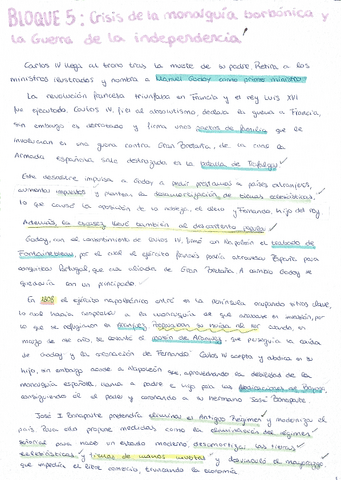 BLOQUE 5: Crisis de la monarquía borbónica y
la Guerra de la independencia
Carlos IV llega al trono tras la muerte de su padre. Retira a los
ministros ilustrados y nombra a Manuel Godoy como primer ministro
La revolución francesa triunfaba en Francia y el rey Luis XVI
fue ejecutado. Carlos IV, fiel al absolutismo, declara la guerra a Francia,
sin embargo es derrotado y firma unos pactos de familia que le
involucran en una guerra contra Gran Bretaña, de la cual la
Armada española sale destrozada en la batalla de Trafalgar
Este desastre impulsa a Godoy a pedir préstamos a países extranjeros,
aumentar impuestos y plantear la desamortización de bienes eclesiásticos,
lo que causó la oposición de la nobleza, el clero y Fernando, hijo del rey
Además, la escasez llevó también al descontento popular
Godoy, con el consentimiento de Carlos IV, firmó con Napoleón el tratado de
Fontainebleau, por el cual el ejército francés podía atravesar España para
conquistar Portugal, que era aliada de Gran Bretaña. A cambio Godoy se
quedaría con un principado
En 1808 el ejército napoleónico entró en la península ocupando sitios clave,
lo cual hacía sospechar a la monarquía de que aquello era invasión, por
lo que se refugiaron en Aranjuez. cuando, en
marzo de ese año, se levanta el motín de Aranjuez, que perseguía la caída
de Godoy y la coronación de Fernando. Carlos IV acepta y abdica en su
hijo, sin embargo acude a Napoleón que, aprovechando la debilidad de la
monarquía española, llama a padre e hijo para las abdicaciones de Bayona,
consiguiendo él el poder y coronando a su hermano José Bonaparte.
José I Bonaparte pretendía eliminar el Antiguo Régimen y modernizar el
país. Para ello propone medidas como la eliminación del régimen
señorial para hacer un estado moderno, desamortizar las tierras
eclesiásticas, y tierras de manos muertas y desvinculó el mayorazgo,
que impedía el libre comercio, truncando la economía